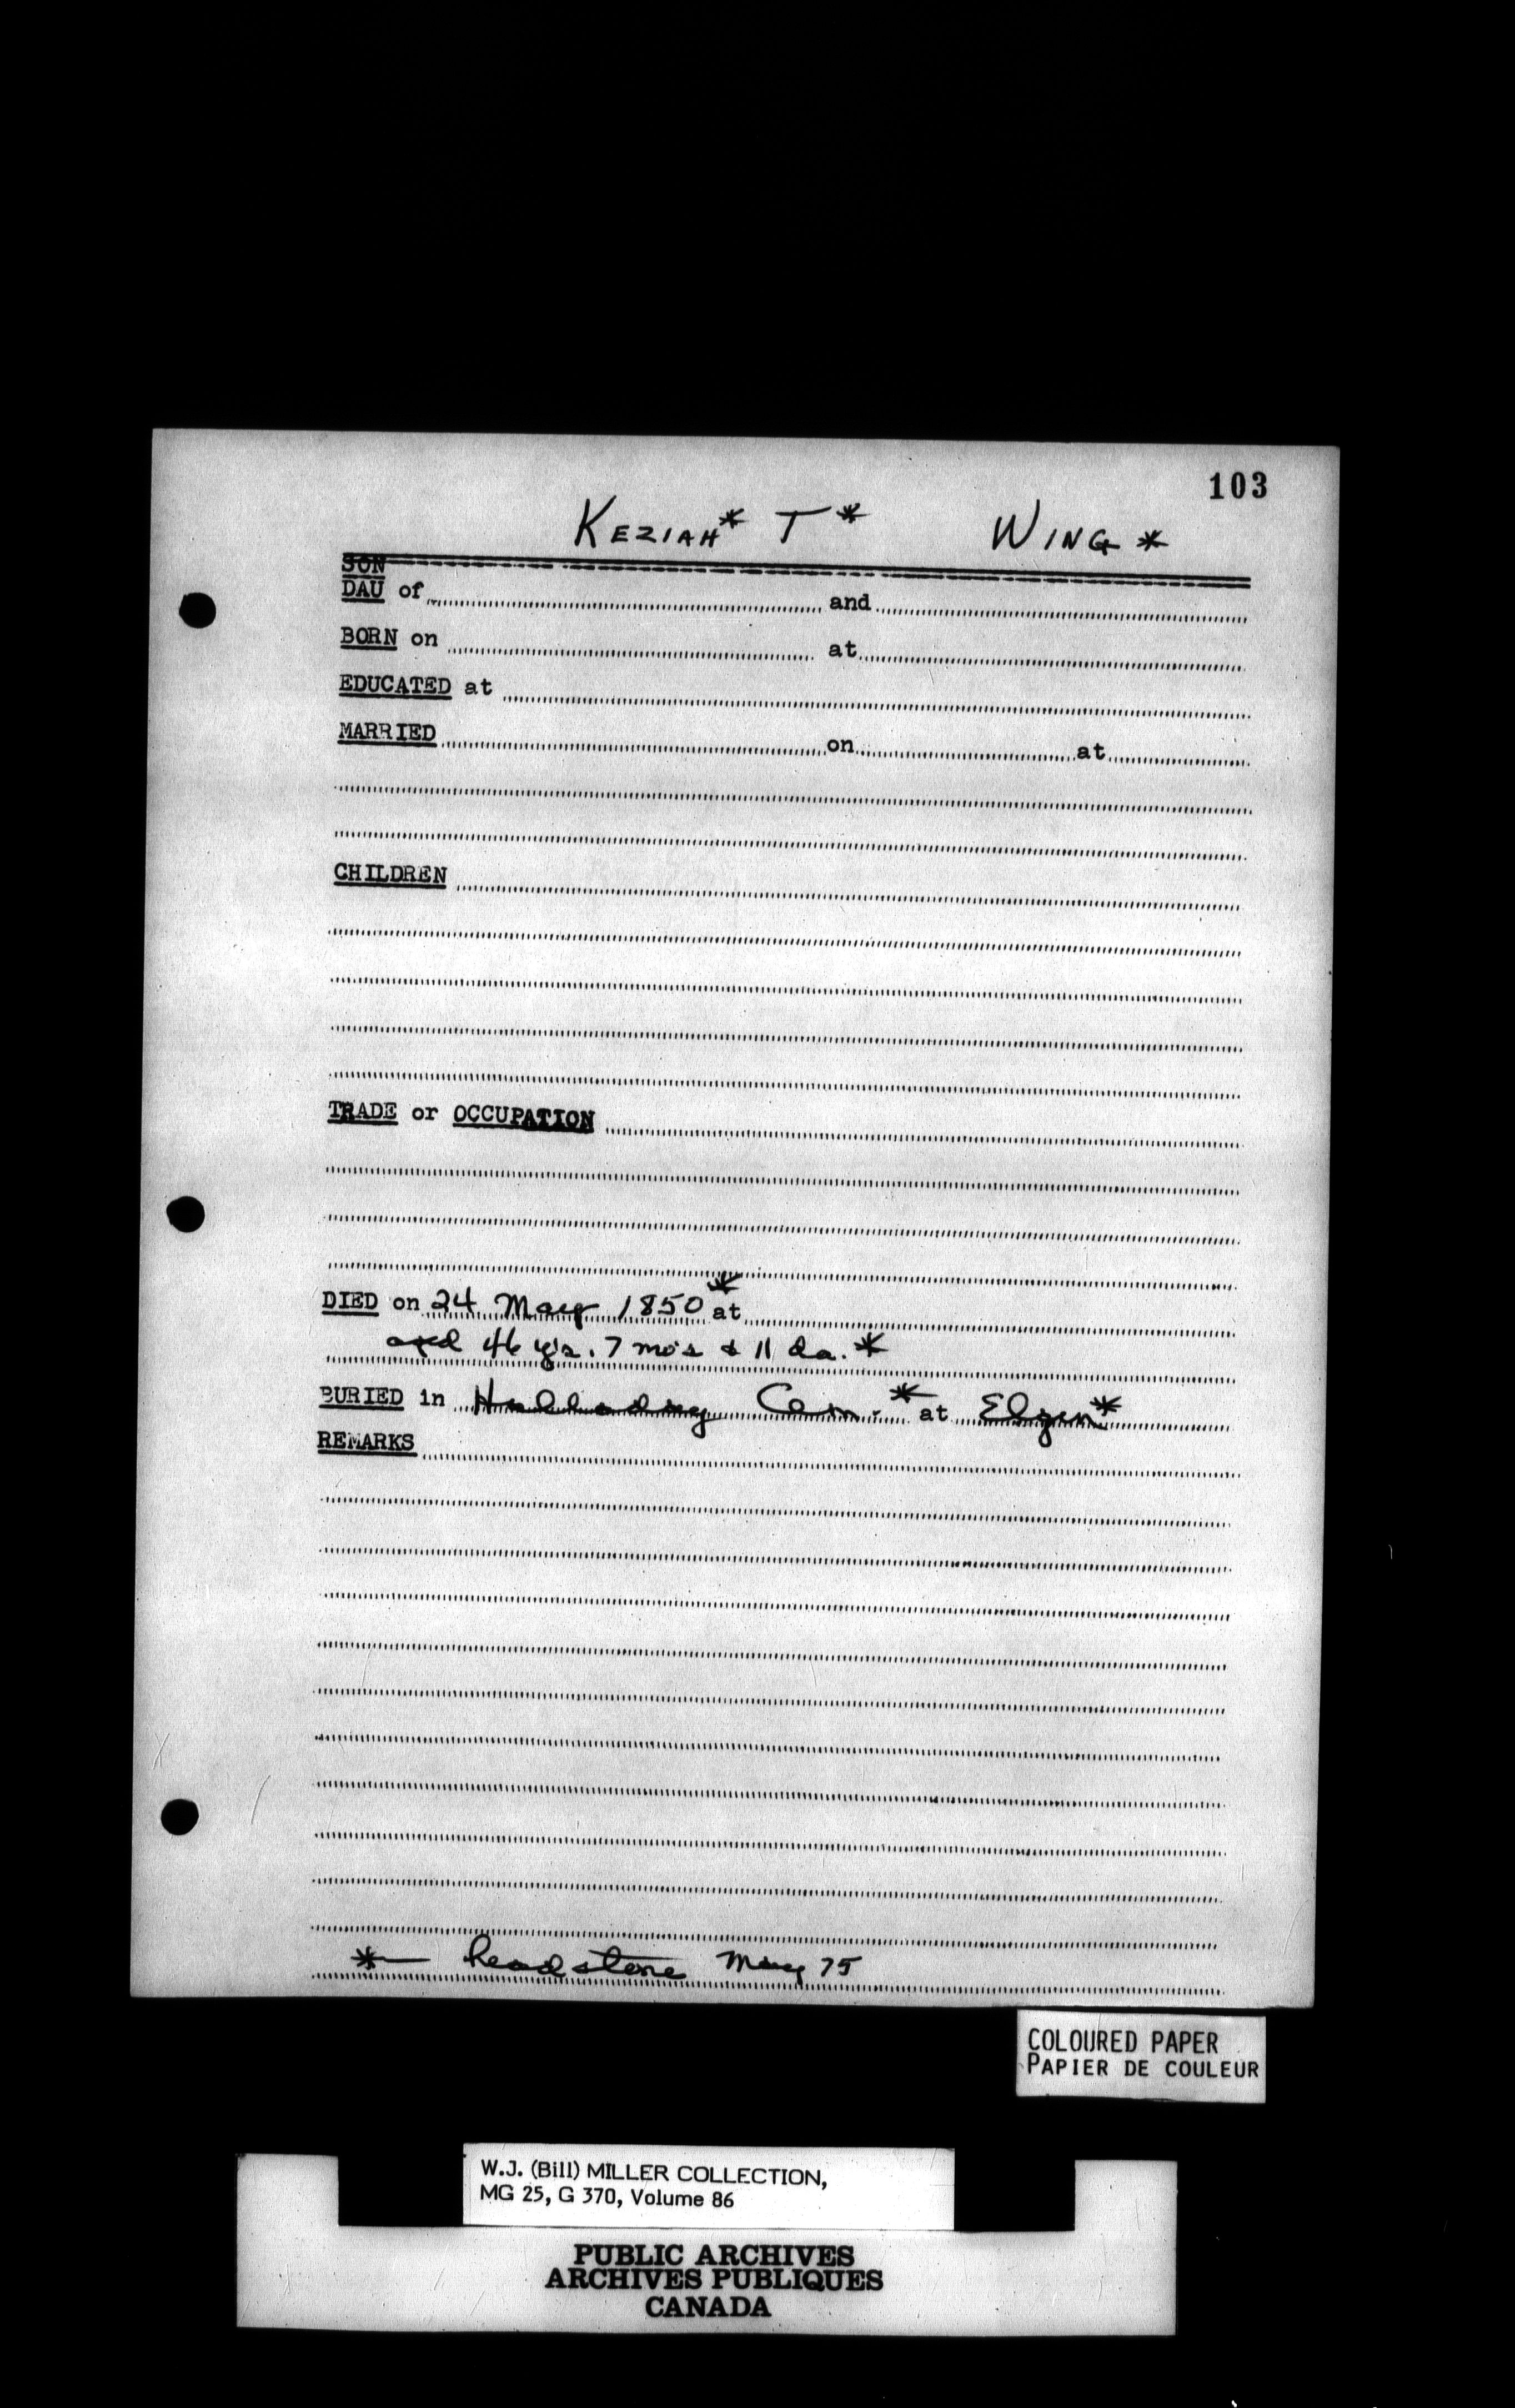 103
KEZIAH* T* WING*
SON
DAU of and
BORN on at
EDUCATED at
MARRIED on at
CHILDREN
TRADE or OCCUPATION
DIED on 24 May 1850* at
aged 46 y's. 7 mo's & 11 da.*
BURIED in Halladay Cem.* at Elgin*
REMARKS
*— headstone May 75
COLOURED PAPER
PAPIER DE COULEUR
W.J. (Bill) MILLER COLLECTION,
MG 25, G 370, Volume 86
PUBLIC ARCHIVES
ARCHIVES PUBLIQUES
CANADA